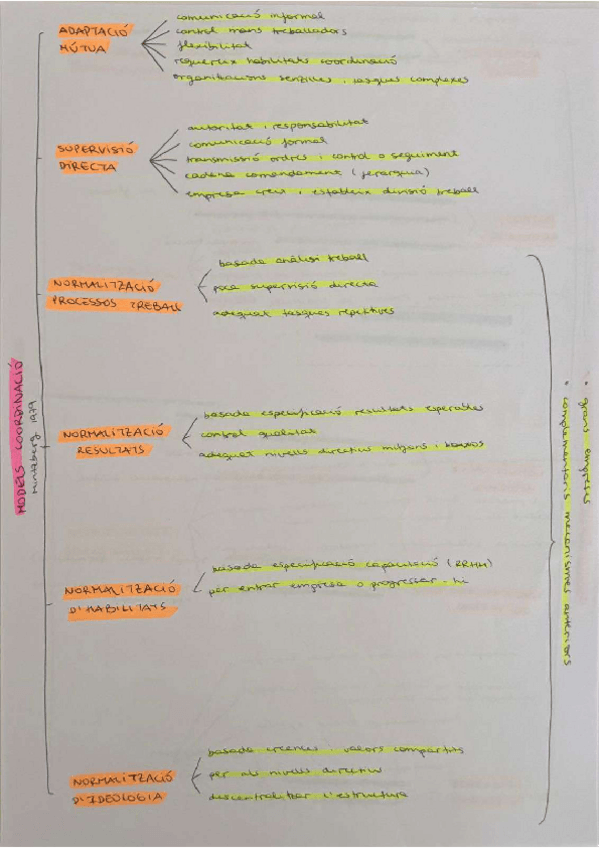 MODELS COORDINACIÓ
Mintzberg 1979
ADAPTACIÓ
MÚTUA
comunicació informal
control mans treballadors
flexibilitat
requereix habilitats coordinació
organitzacions senzilles i tasques complexes
SUPERVISIÓ
DIRECTA
autoritat i responsabilitat
comunicació formal
transmissió ordres i control o seguiment
cadena comandament (jerarquia)
empresa creix i estableix divisió treball
NORMALITZACIÓ
PROCESSOS TREBALL
basada anàlisi treball
poca supervisió directa
adequat tasques repetitives
NORMALITZACIÓ
RESULTATS
basada especificació resultats esperables
control qualitat
adequat nivells directius mitjans i baixos
NORMALITZACIÓ
D'HABILITATS
basada especificació capacitació (RRHH)
per entrar empresa o progressar-hi
NORMALITZACIÓ
D'IDEOLOGIA
basada creences i valors compartits
per als nivells directius
descentralitzar l'estructura
• grans empreses
• complementaris mecanismes anteriors